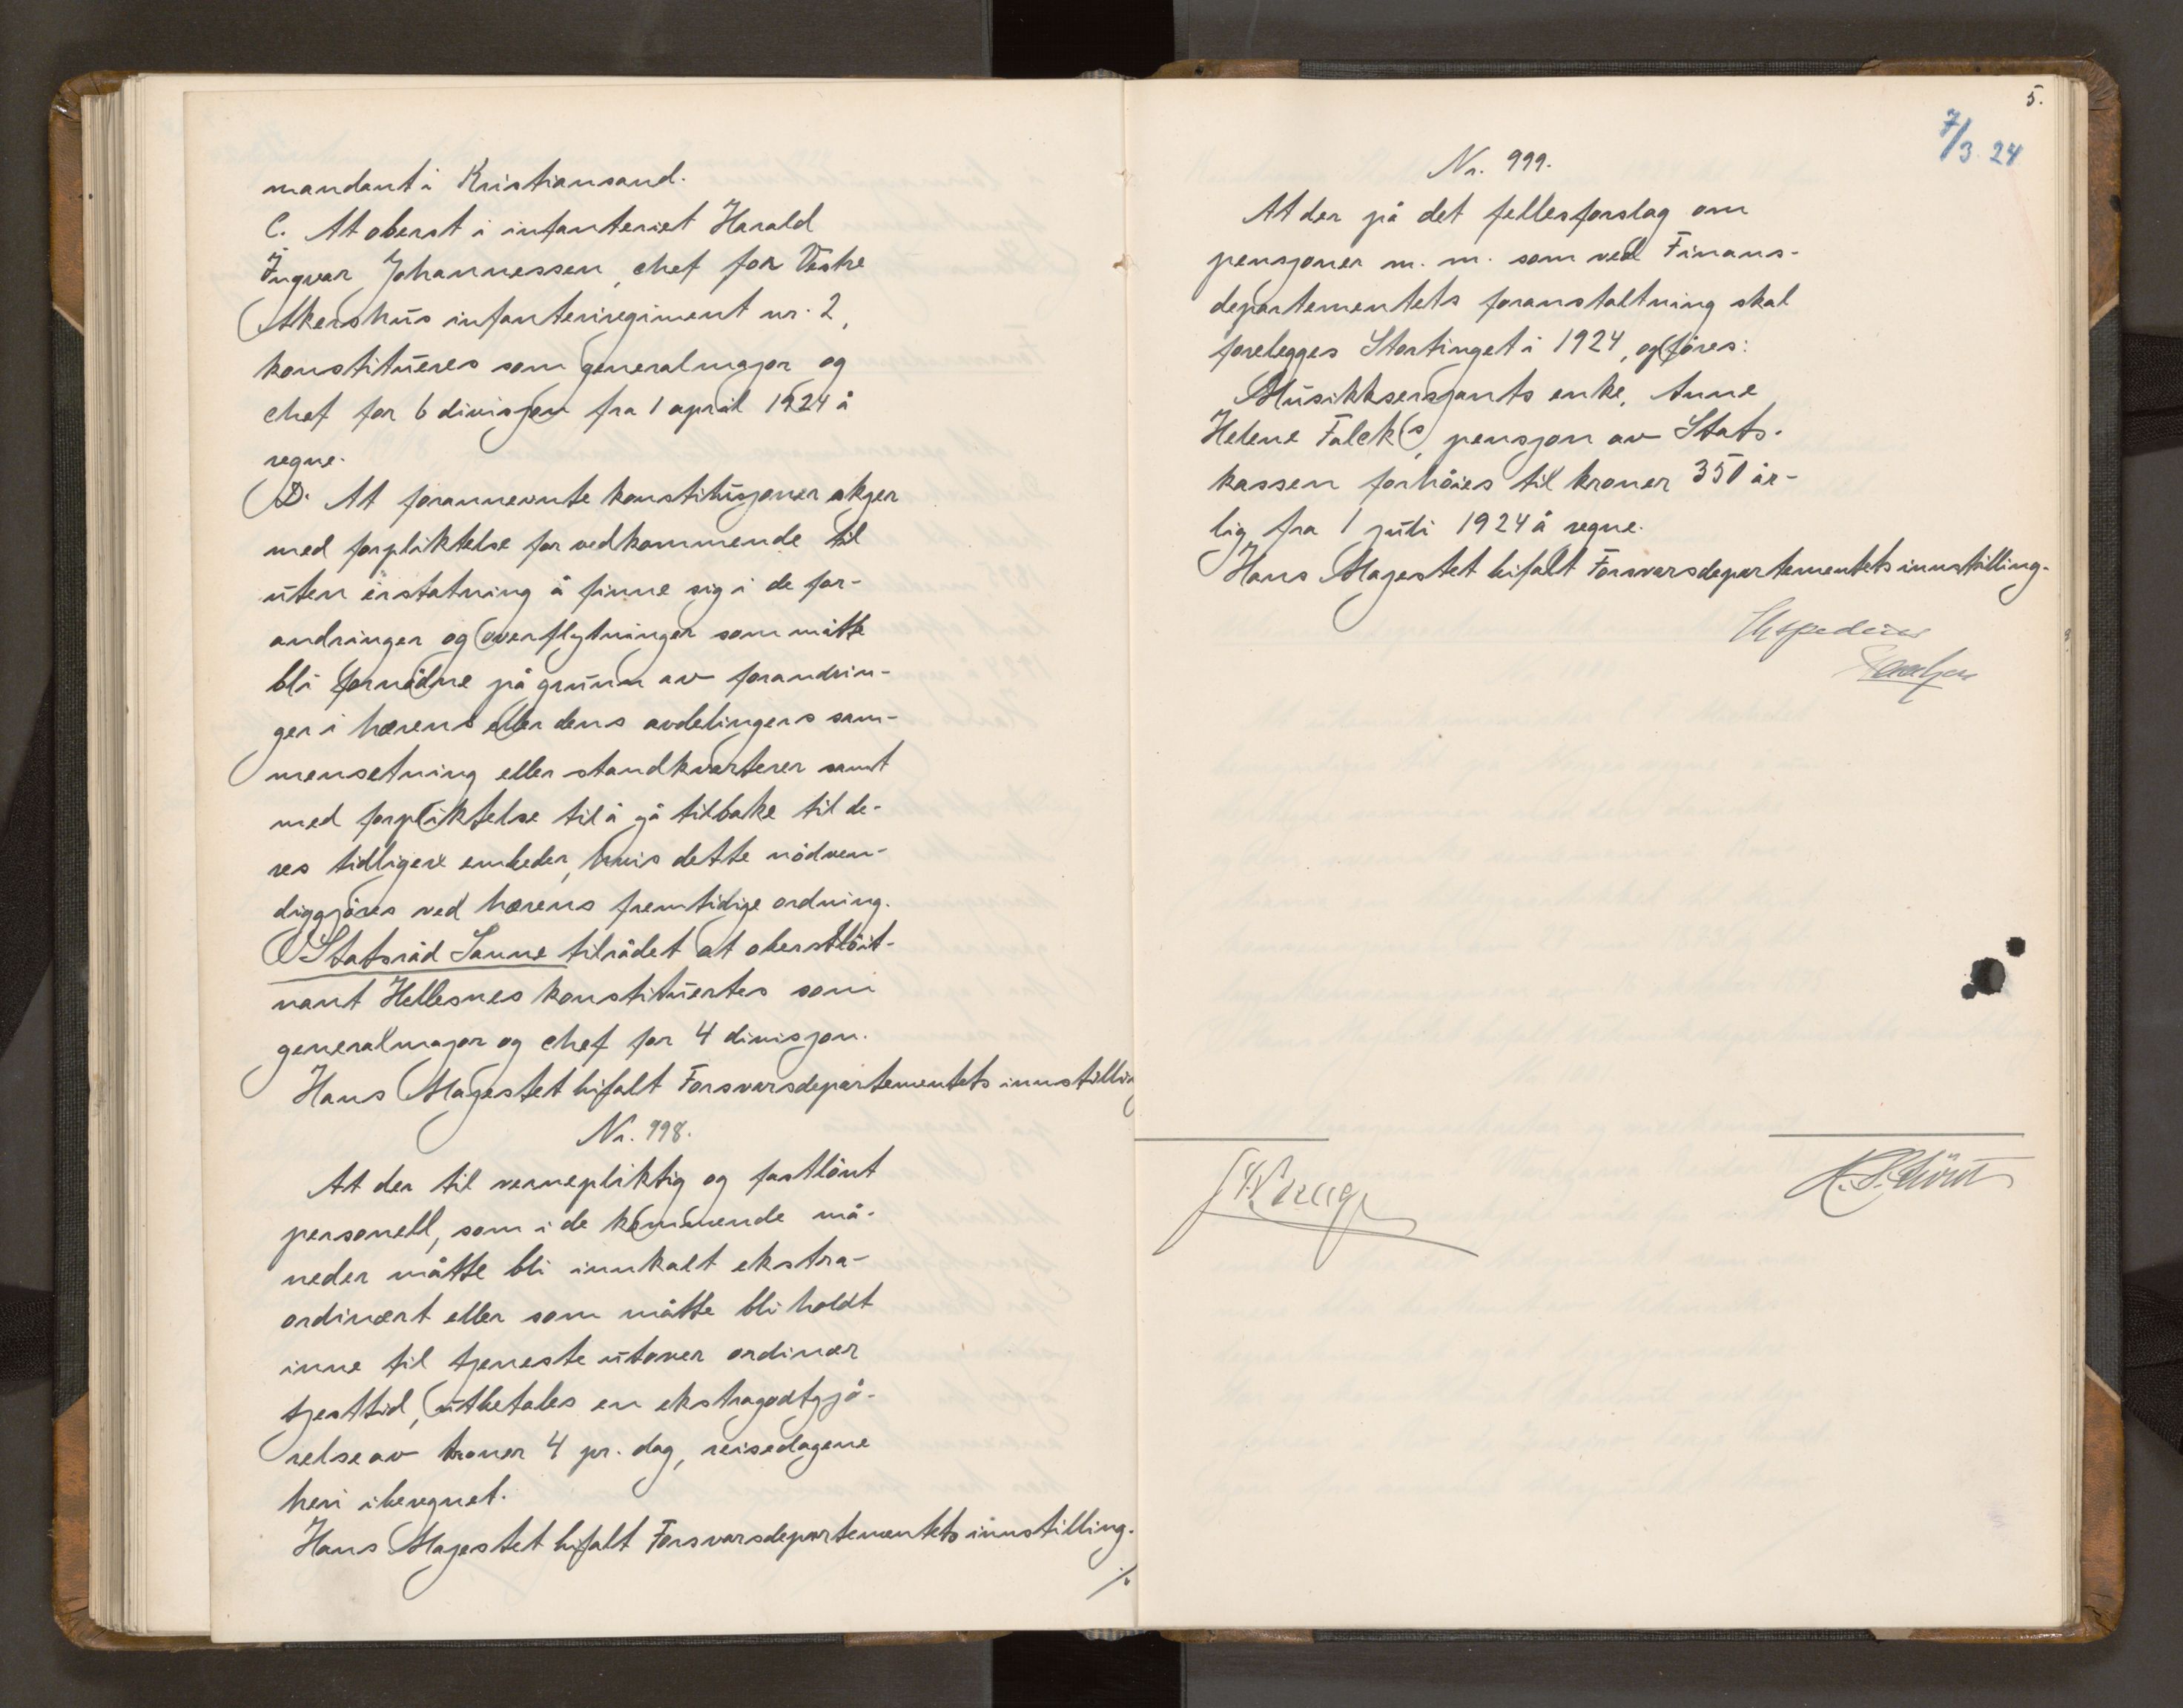 mandant i Kristiansand.
C. At oberst i infanteriet Harald
Ingvar Johannessen, chef for Vestre
Akershus infanteriregiment nr. 2,
konstitueres som generalmajor og
chef for 6 divisjon fra 1 april 1924 å
regne.
D. At forannevnte konstitusjoner skjer
med forpliktelse for vedkommende til
uten erstatning å finne sig i de for-
andringer og overflytninger som måtte
bli fornødne på grunn av forandrin-
ger i hærens eller dens avdelingers sam-
mensetning eller standkvarterer samt
med forpliktelse til å gå tilbake til de-
res tidligere embeder, hvis dette nødven-
diggjøres ved hærens fremtidige ordning.
Statsråd Sanne tilrådet at oberstløit-
nant Hellesnes konstituertes som
generalmajor og chef for 4 divisjon.
Hans Majestet bifalt Forsvarsdepartementets innstilling
Nr. 998.
At der til vernepliktig og fastlønt
personell, som i de kommende må-
neder måtte bli innkalt ekstra-
ordinært eller som måtte bli holdt
inne til tjeneste utover ordinær
tjesttid, utbetales en ekstragodtgjø-
relse av kroner 4 pr. dag, reisedagene
heri iberegnet.
Hans Majestet bifalt Forsvarsdepartementets innstilling.
./.
5.
7/3. 24
Nr. 999.
At der på det fellesforslag om
pensjoner m. m. som ved Finans-
departementets foranstaltning skal
forelegges Stortinget i 1924, opføres:
Musikksersjants enke, Anne
Helene Falck's, pensjon av Stats-
kassen forhøies til kroner 350 år-
lig fra 1 juli 1924 å regne.
Hans Majestet bifalt Forsvarsdepartementets innstilling.
Ekspederes